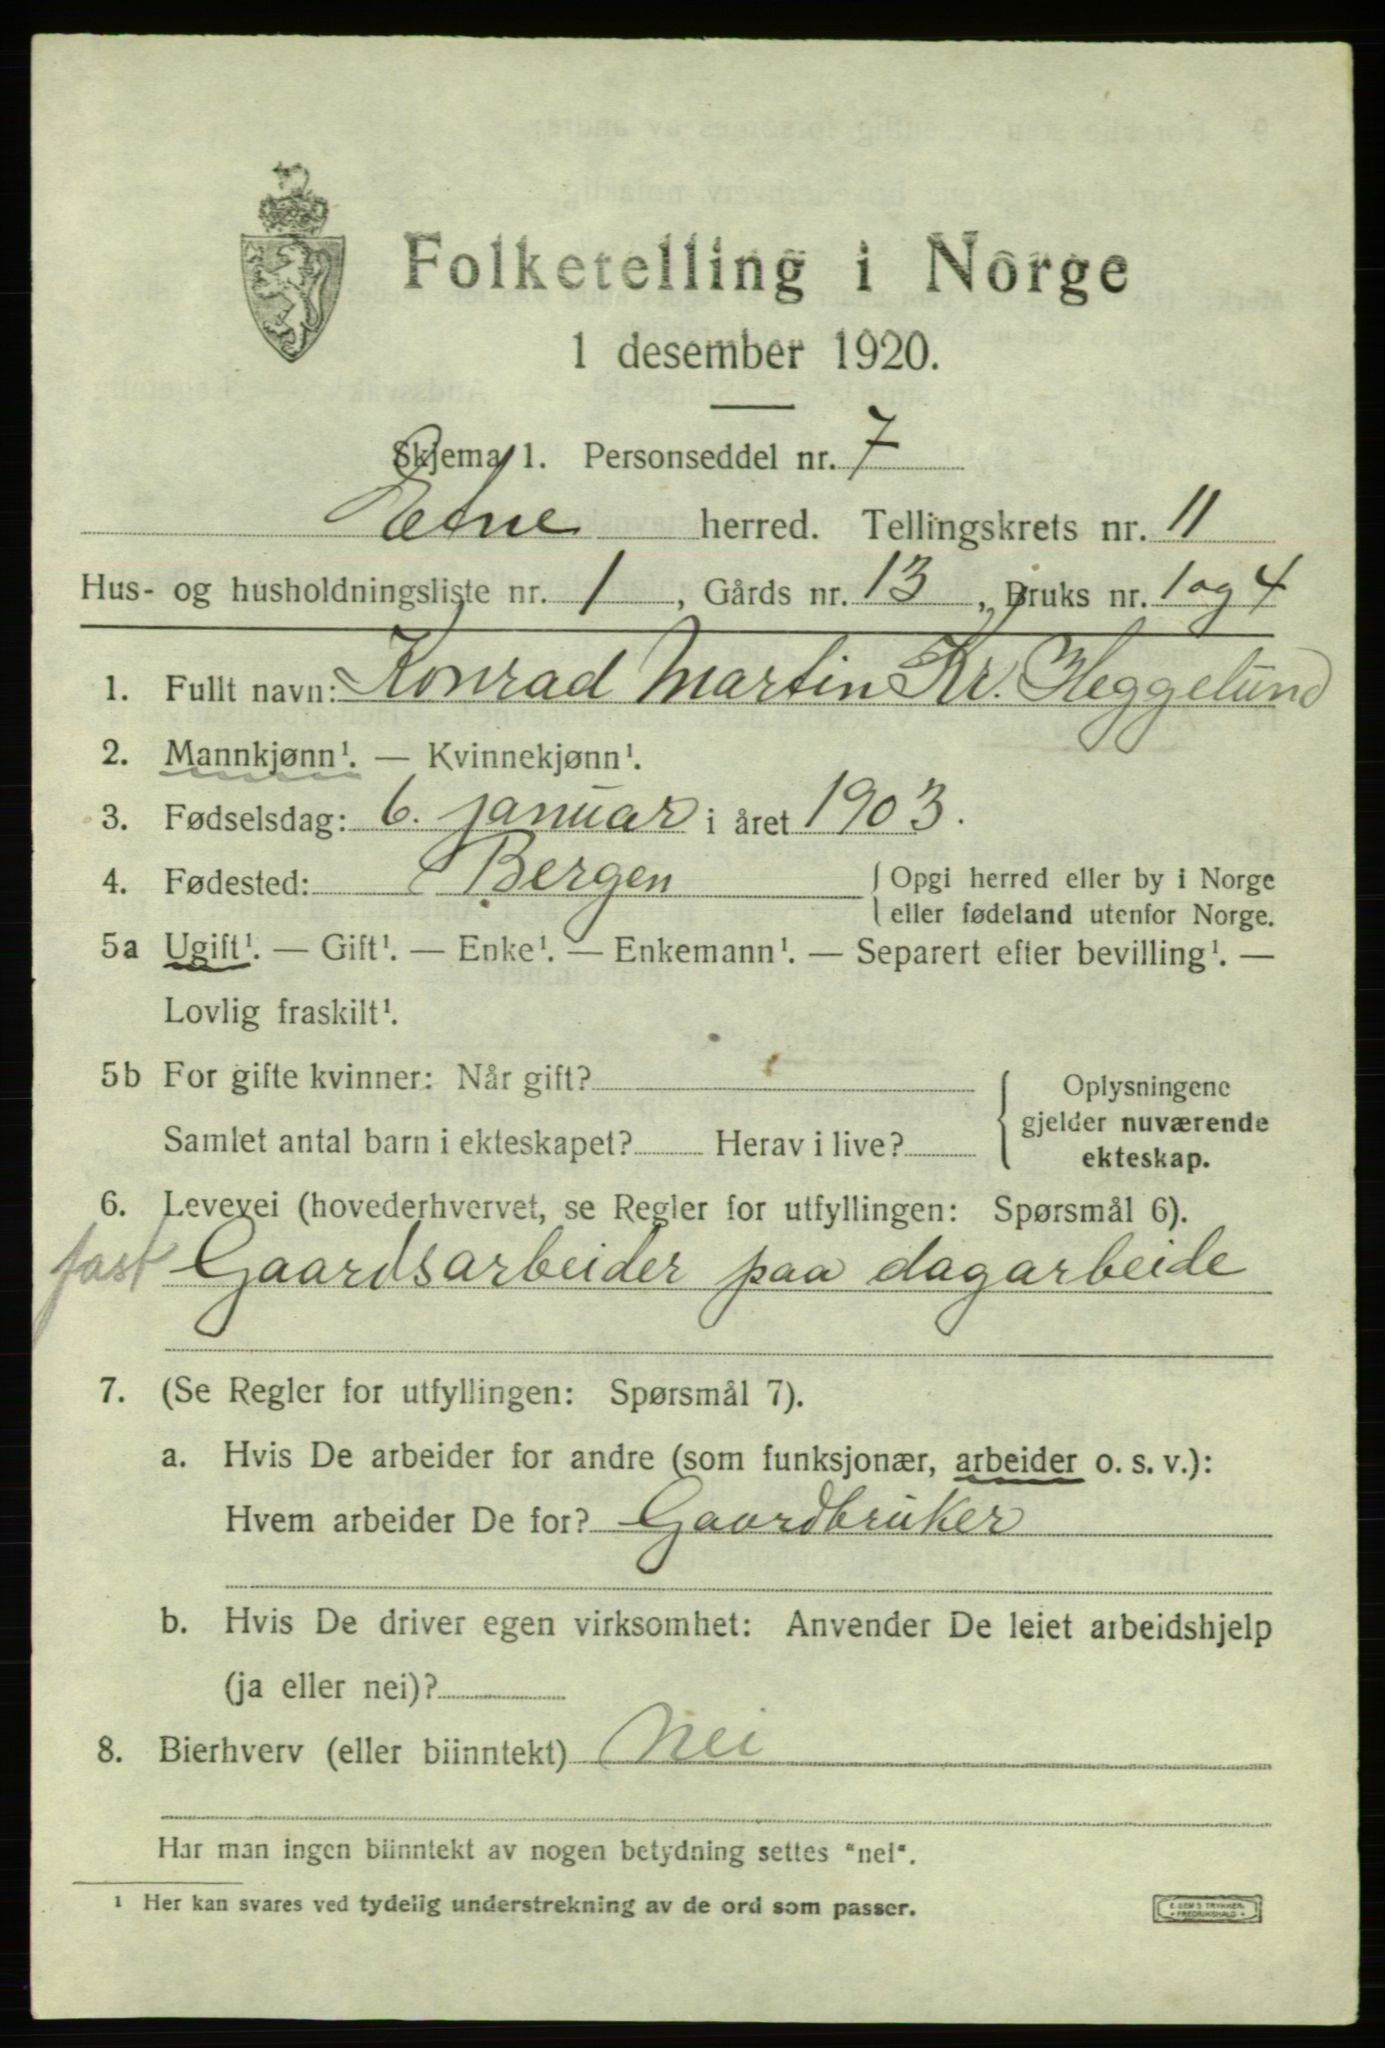 Folketelling i Norge
1 desember 1920.
Skjema 1. Personseddel nr. 7
Etne herred. Tellingskrets nr. 11
Hus- og husholdningsliste nr. 1, Gårds nr. 13, Bruks nr. 1 og 4
1. Fullt navn: Konrad Martin Kr. Heggelund
2. Mannkjønn¹. — Kvinnekjønn¹.
3. Fødselsdag: 6. januar i året 1903.
4. Fødested: Bergen { Opgi herred eller by i Norge
eller fødeland utenfor Norge.
5a Ugift¹. — Gift¹. — Enke¹. — Enkemann¹. — Separert efter bevilling¹. —
Lovlig fraskilt¹.
5b For gifte kvinner: Når gift?
Samlet antal barn i ekteskapet? Herav i live?
{ Oplysningene
gjelder nuværende
ekteskap.
6. Levevei (hovederhvervet, se Regler for utfyllingen: Spørsmål 6).
fast Gaardsarbeider paa dagarbeide
7. (Se Regler for utfyllingen: Spørsmål 7).
a. Hvis De arbeider for andre (som funksjonær, arbeider o. s. v.):
Hvem arbeider De for? Gaardbruker
b. Hvis De driver egen virksomhet: Anvender De leiet arbeidshjelp
(ja eller nei)?
8. Bierhverv (eller biinntekt) Nei
Har man ingen biinntekt av nogen betydning settes "nei".
¹ Her kan svares ved tydelig understrekning av de ord som passer.
FREDRIKSHALD